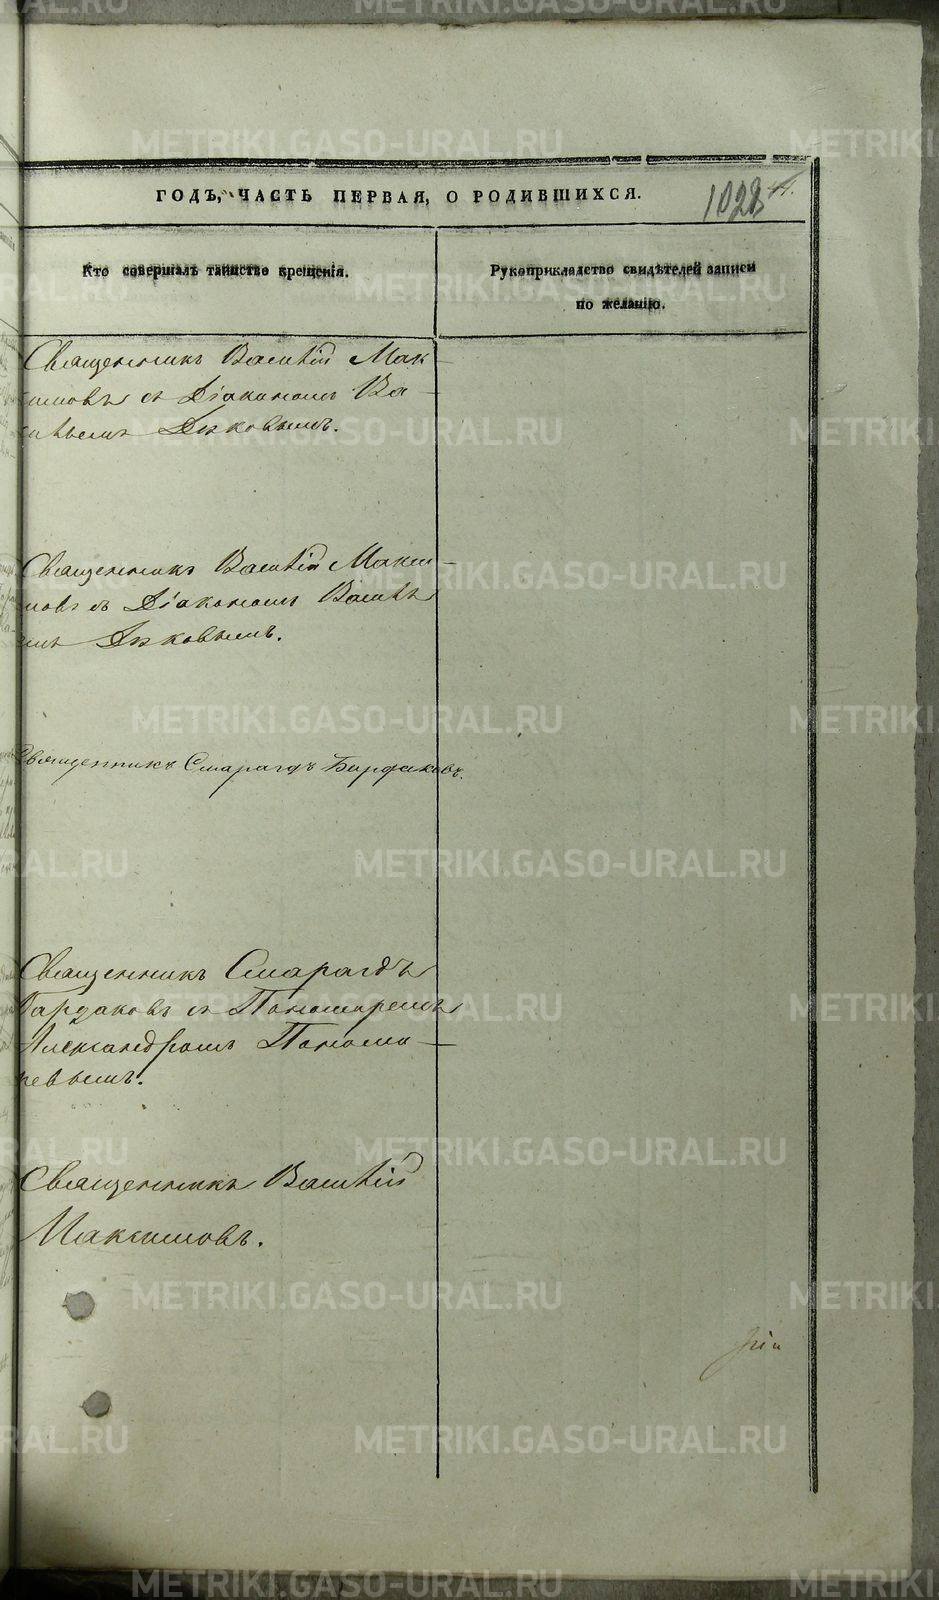 ГОДЪ, ЧАСТЬ ПЕРВАЯ, О РОДИВШИХСЯ.
1028
Кто совершалъ таинство крещенія.
Рукоприкладство свидѣтелей записи
по желанію.
Священникъ Василій Мак
симовъ съ Діакономъ Ва-
сильемъ
Священникъ Василій Макси-
мовъ съ Діакономъ Василь
емъ
Священникъ Смарагдъ
Священникъ Смарагдъ
съ Пономаремъ
Александромъ Понома-
ревымъ.
Священникъ Василій
Максимовъ.
METRIKI.GASO-URAL.RU